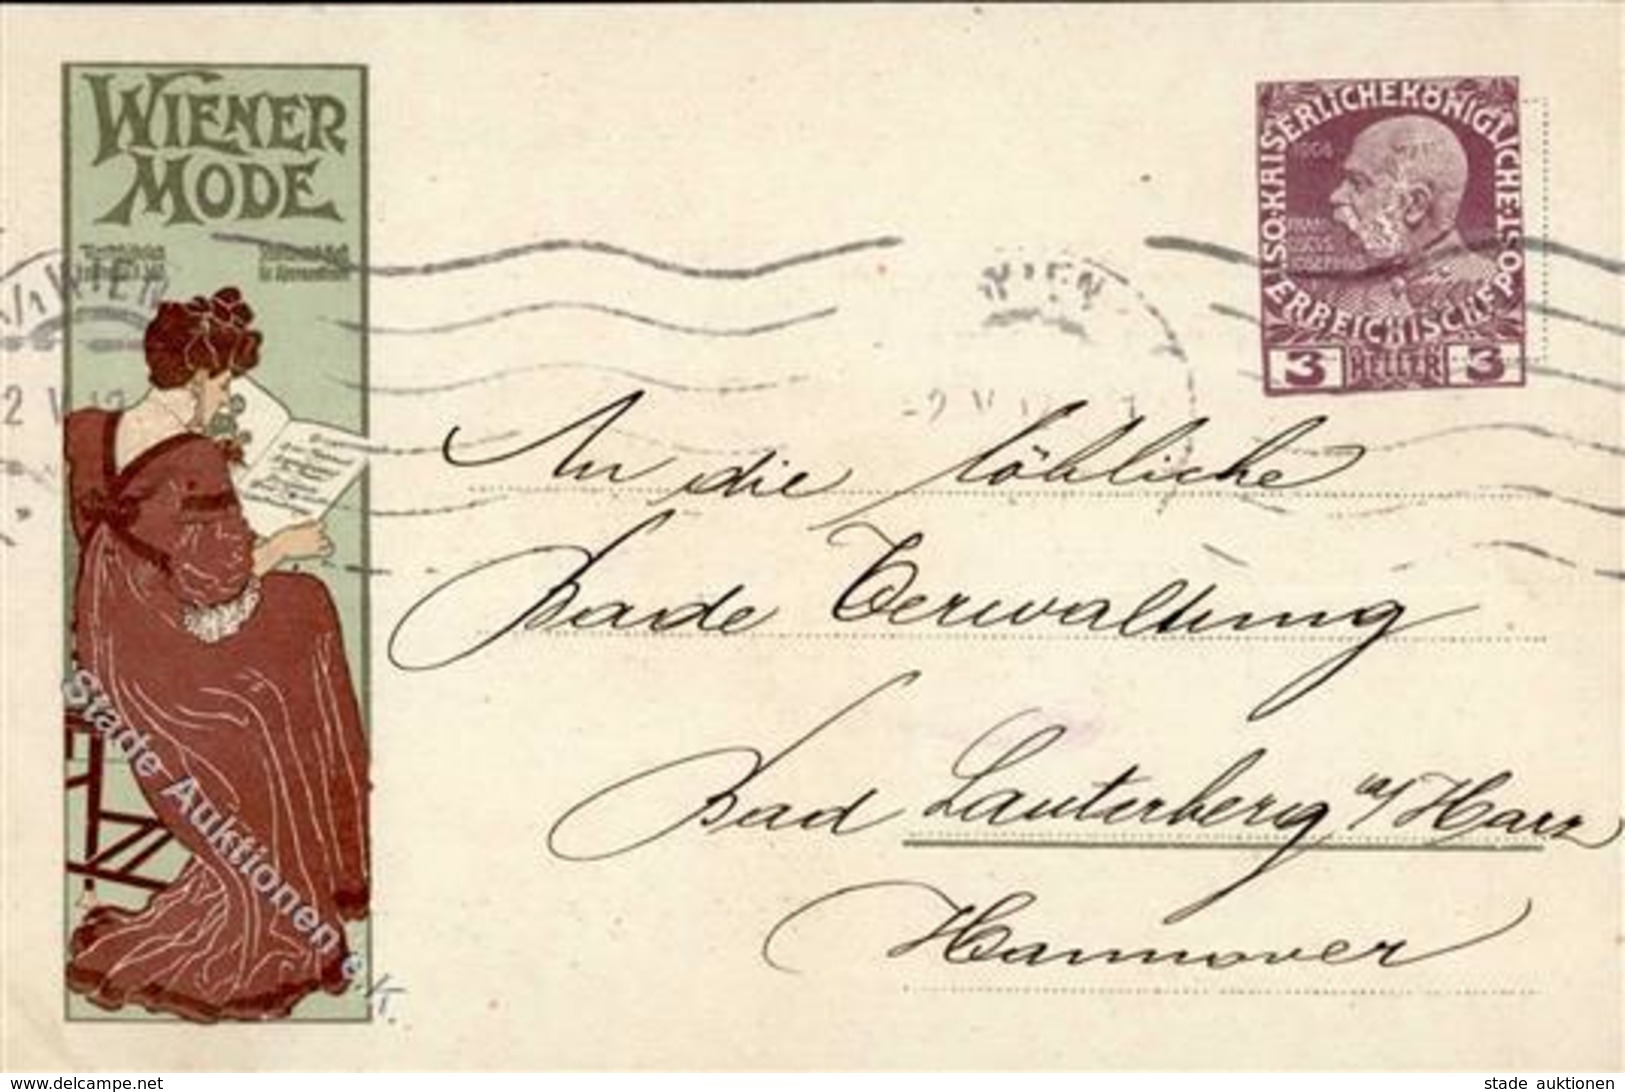 WIENER
MODE
KAISERLICHE KÖNIGLICHE ÖSTERREICHISCHE POST
1908
3 HELLER 3
1/1 WIEN
WIEN
2 V 12
-2 V
An die löbliche
Bade Verwaltung
Bad Lauterberg a/ Harz
Hannover
Stade Auktionen e.K.
www.delcampe.net
stade auktionen